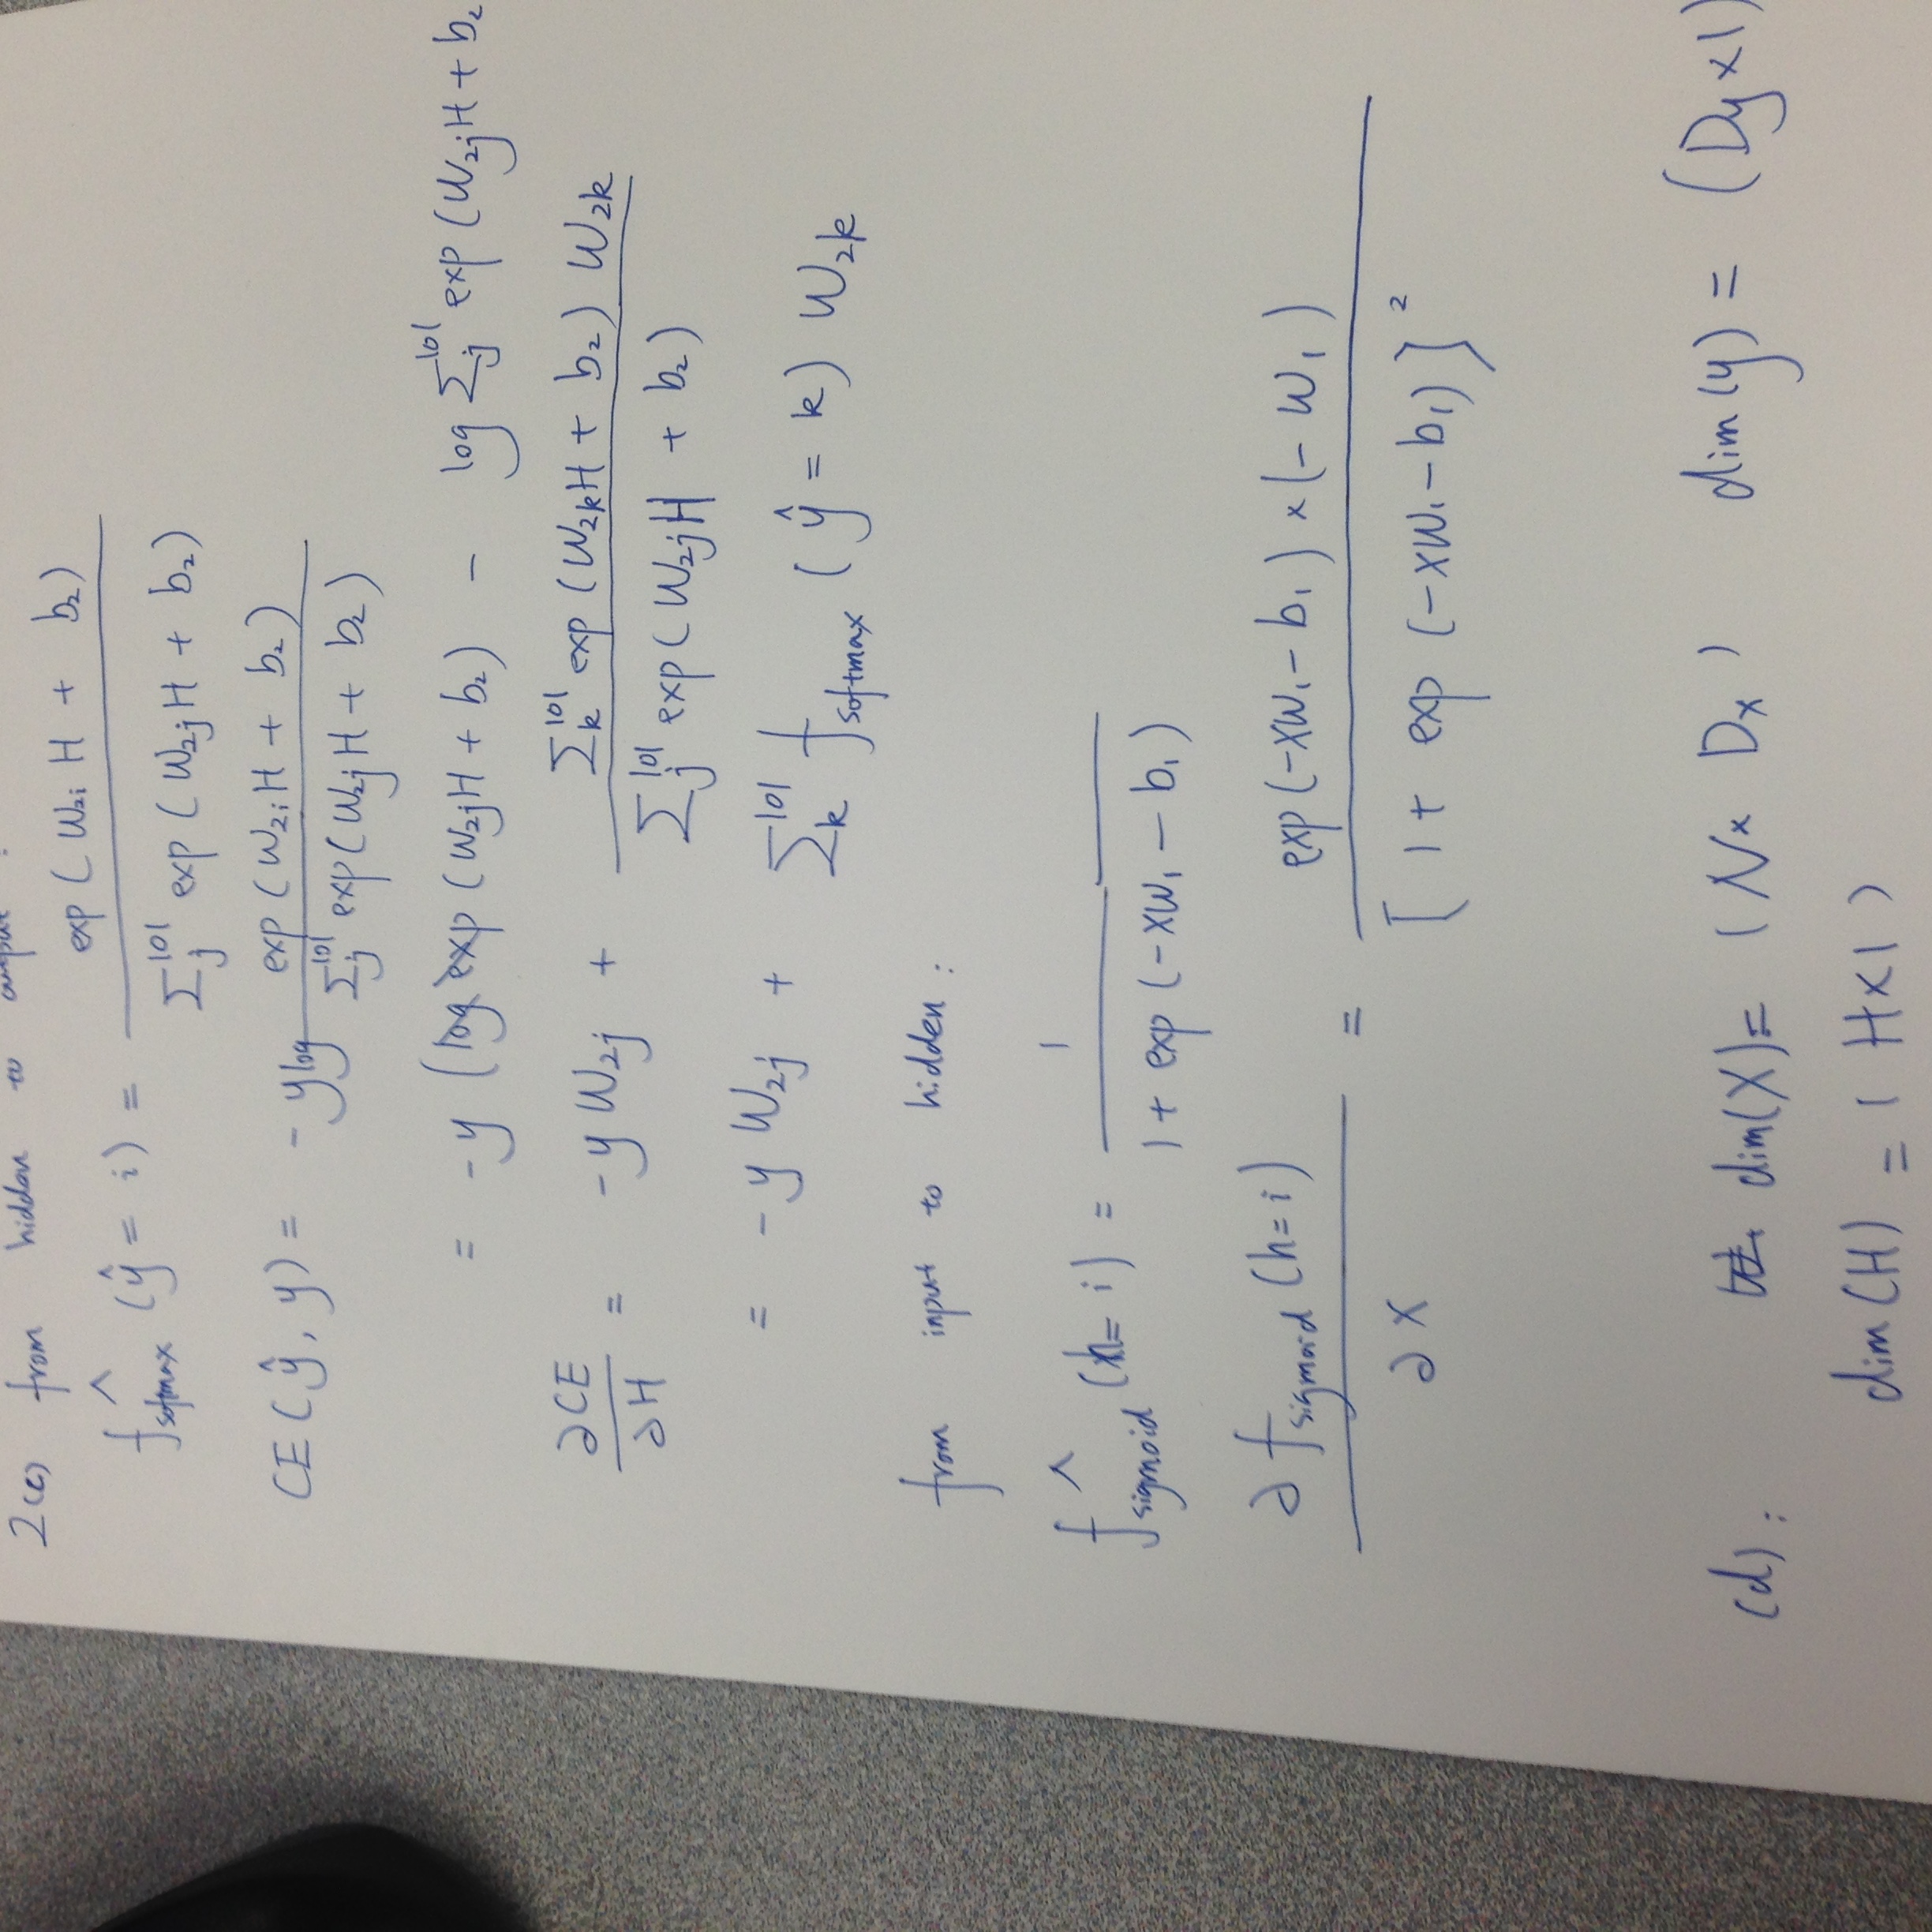 2(c) from hidden to output :
f̂_softmax (ŷ = i) = exp ( W_2i H + b_2 ) / Σ_j^101 exp ( W_2j H + b_2 )
CE ( ŷ, y ) = - y log exp ( W_2i H + b_2 ) / Σ_j^101 exp ( W_2j H + b_2 )
= - y ( log exp ( W_2j H + b_2 ) - log Σ_j^101 exp ( W_2j H + b_2
∂CE / ∂H = - y W_2j + Σ_k^101 exp ( W_2k H + b_2 ) W_2k / Σ_j^101 exp ( W_2j H + b_2 )
= - y W_2j + Σ_k^101 f_softmax ( ŷ = k ) W_2k
from input to hidden :
f̂_sigmoid (h = i) = 1 / 1 + exp ( - x W_1 - b_1 )
∂ f_sigmoid (h = i) / ∂ X = exp ( - x W_1 - b_1 ) × ( - W_1 ) / [ 1 + exp ( - x W_1 - b_1 ) ]^2
(d) : dim(X) = ( N × D_x ) dim(y) = ( D_y × 1 )
dim(H) = ( H × 1 )